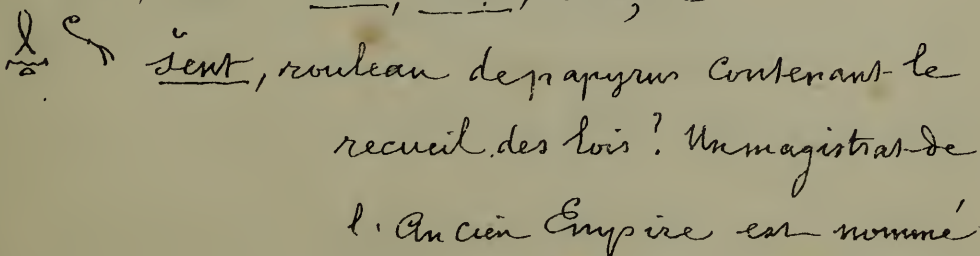 šent, rouleau de papyrus contenant le
recueil des lois? Un magistrat de
l'Ancien Empire est nommé